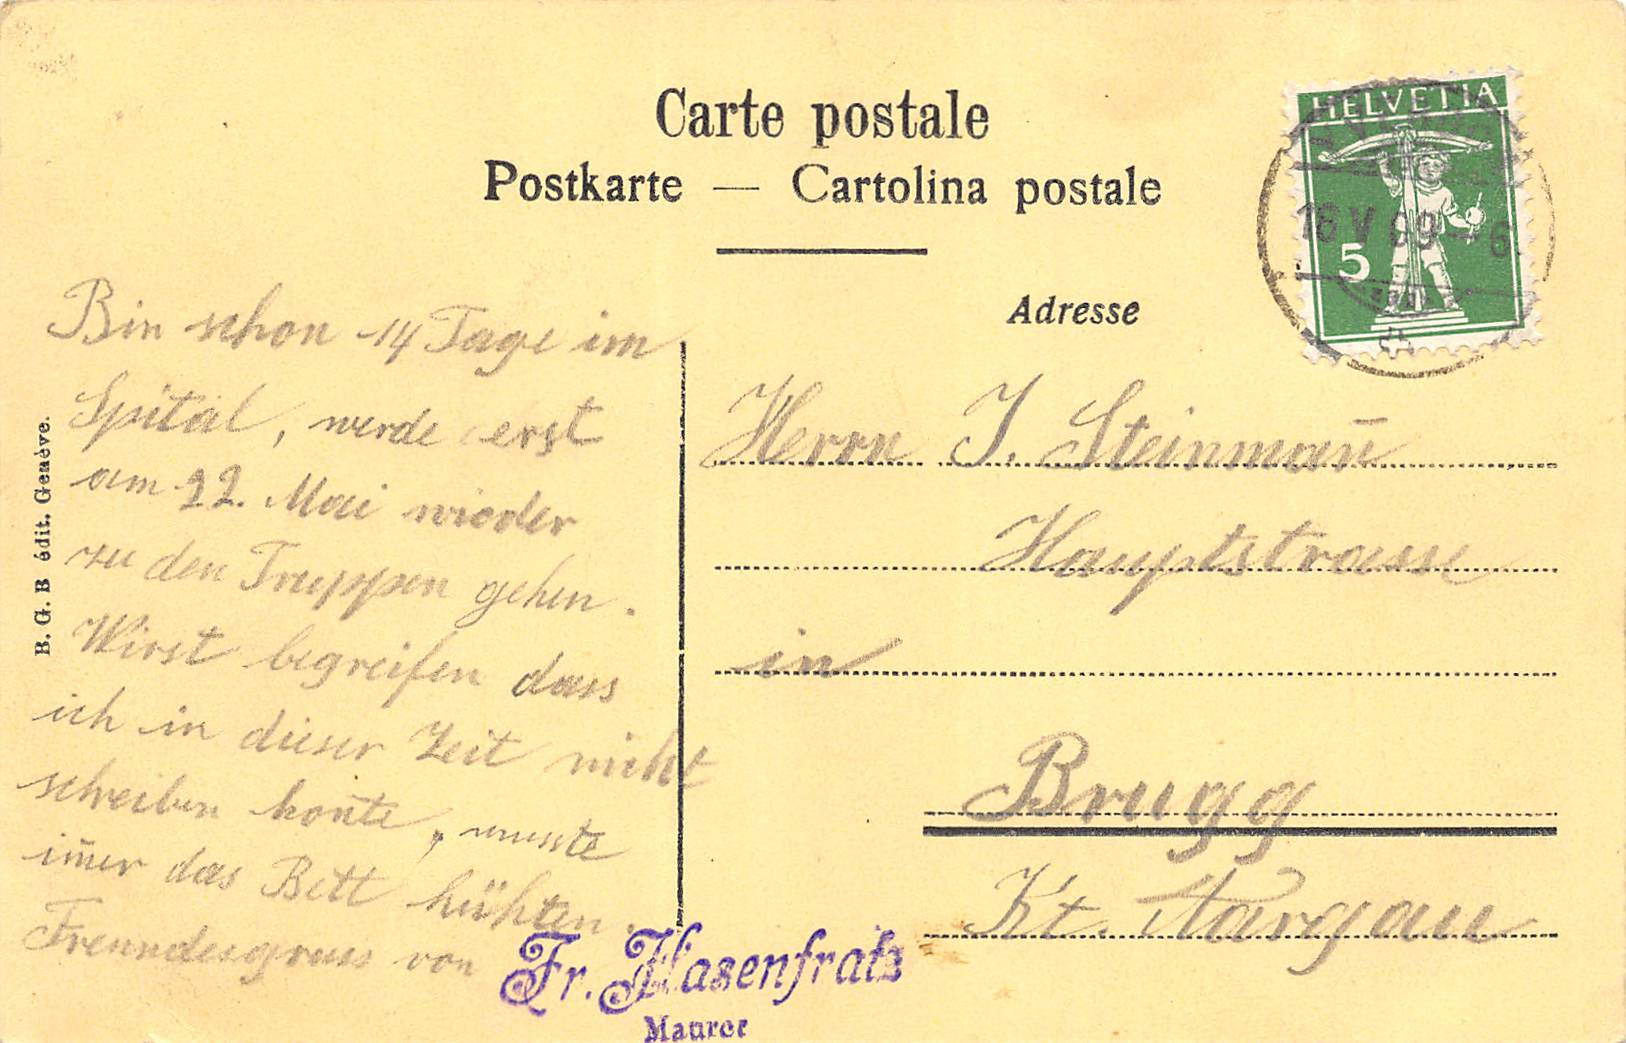 Carte postale
Postkarte — Cartolina postale
HELVETIA
18 V 09 – 6.
5
Adresse
Bin schon 14 Tage im
Spital, werde erst
am 22. Mai wieder
zu den Truppen gehen.
Wirst begreifen dass
ich in dieser Zeit nicht
schreiben kon̄te, musste
im̄er das Bett hühten.
Freundesgruss von
Fr. Hasenfratz
Maurer
B. G. B édit. Genève.
Herrn J. Steinman̄
Hauptstrasse
in
Brugg
Kt. Aargau